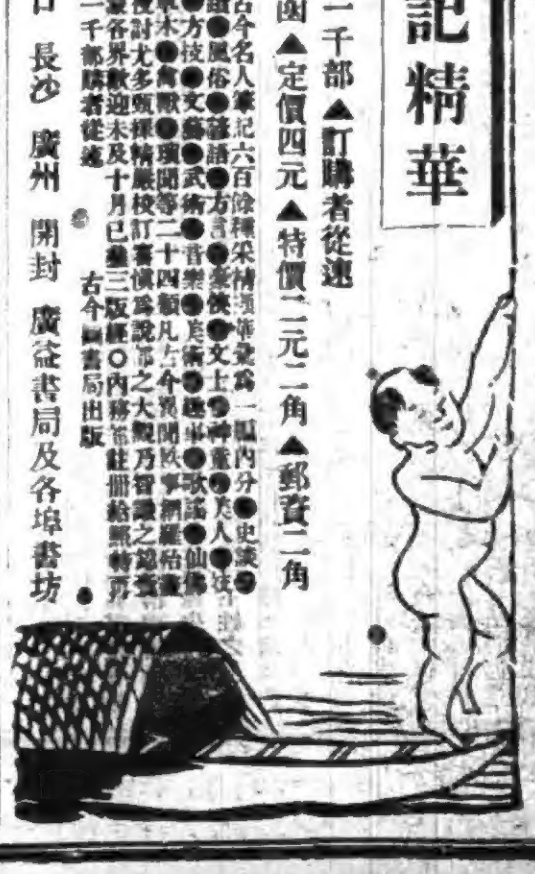 記精華
一千部▲訂購者從速
函▲定價四元▲特價二元二角▲郵資二角
古今名人筆記六百餘種采精擷華彙爲一編內分●史談●
●風俗●諺語●方言●豪俠●文士●神童●美人●
●方技●文藝●武術●音樂●美術●趣事●歌謠●仙佛
草木●禽獸●瑣聞等二十四類凡古今異聞軼事網羅殆盡
搜討尤多甄採精嚴校訂審慎爲說部之大觀乃智識之錦囊
蒙各界歡迎未及十月已三版○內務部註冊給照
一千部購者從速
古今圖書局出版
口 長沙 廣州 開封 廣益書局及各埠書坊